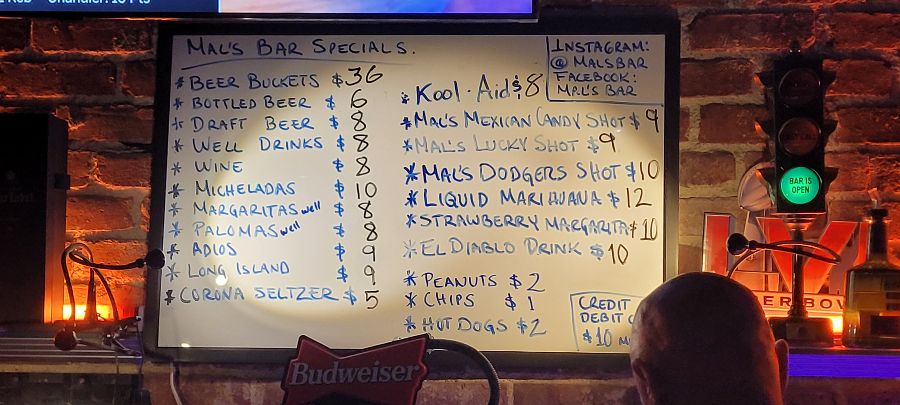 Chandler: 10 Pts
MAL'S BAR SPECIALS.
* BEER BUCKETS $36
* BOTTLED BEER $ 6
* DRAFT BEER $ 8
* WELL DRINKS $ 8
* WINE $ 8
* MICHELADAS $ 10
* MARGARITAS well $ 8
* PALOMAS well $ 8
* ADIOS $ 9
* LONG ISLAND $ 9
* CORONA SELTZER $ 5
INSTAGRAM:
@ MALSBAR
FACEBOOK:
MAL'S BAR
* Kool-Aid $8
* MAL'S MEXICAN CANDY SHOT $ 9
* MAL'S LUCKY SHOT $9
* MAL'S DODGERS SHOT $10
* LIQUID MARIJUANA $ 12
* STRAWBERRY MARGARITA $10
* EL DIABLO DRINK $10
* PEANUTS $ 2
* CHIPS $ 1
* HOT DOGS $ 2
CREDIT
DEBIT
$10
BAR IS
OPEN
Budweiser